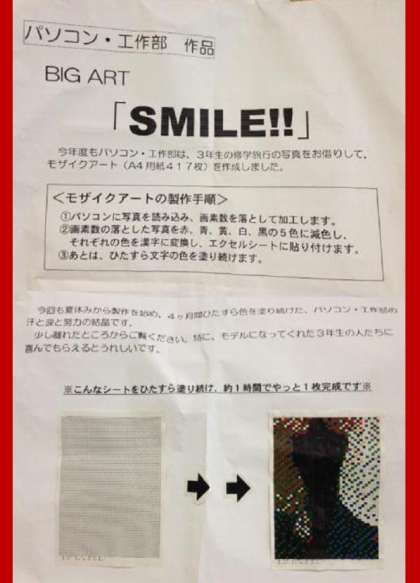 パソコン・工作部　作品
BIG ART
「SMILE!!」
今年度もパソコン・工作部は、３年生の修学旅行の写真をお借りして、
モザイクアート（A4用紙４１７枚）を作成しました。
＜モザイクアートの製作手順＞
①パソコンに写真を読み込み、画素数を落として加工します。
②画素数の落とした写真を赤、青、黄、白、黒の５色に減色し、
それぞれの色を漢字に変換し、エクセルシートに貼り付けます。
③あとは、ひたすら文字の色を塗り続けます。
今回も夏休みから製作を始め、４ヶ月間ひたすら色を塗り続けた、パソコン・工作部の
汗と涙と努力の結晶です。
少し離れたところからご覧ください。特に、モデルになってくれた３年生の人たちに
喜んでもらえるとうれしいです。
※こんなシートをひたすら塗り続け、約１時間でやっと１枚完成です※